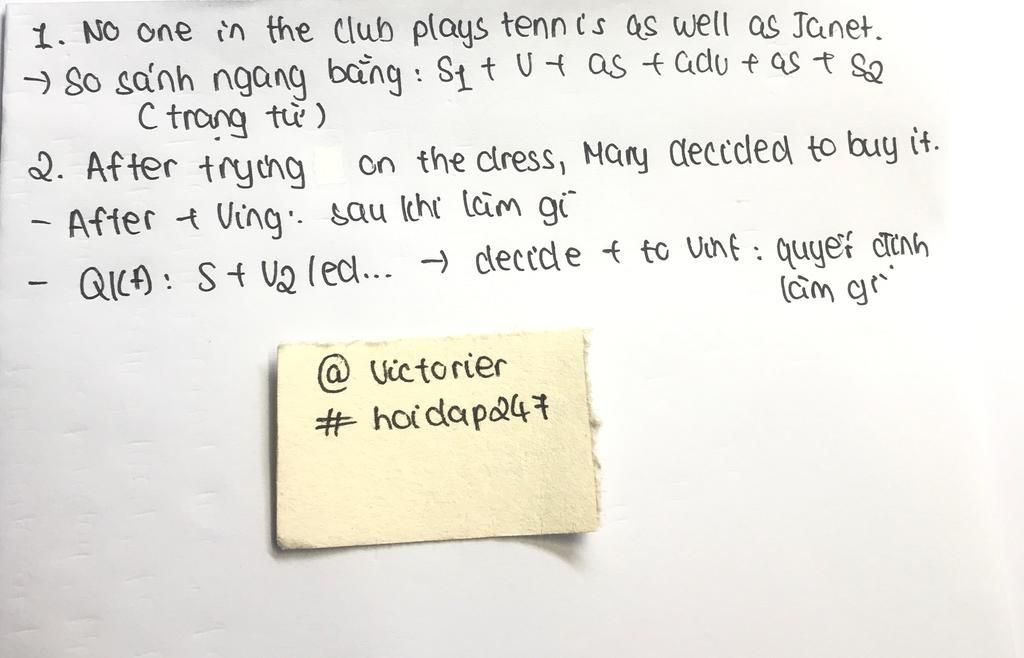 1. No one in the club plays tennis as well as Janet.
→ So sánh ngang bằng: S1 + V + as + adv + as + S2
(trạng từ)
2. After trying on the dress, Mary decided to buy it.
- After + Ving: sau khi làm gì
- QK(Đ): S + V2/ed... → decide + to Vinf: quyết định
làm gì
@ Victorier
# hoidap247